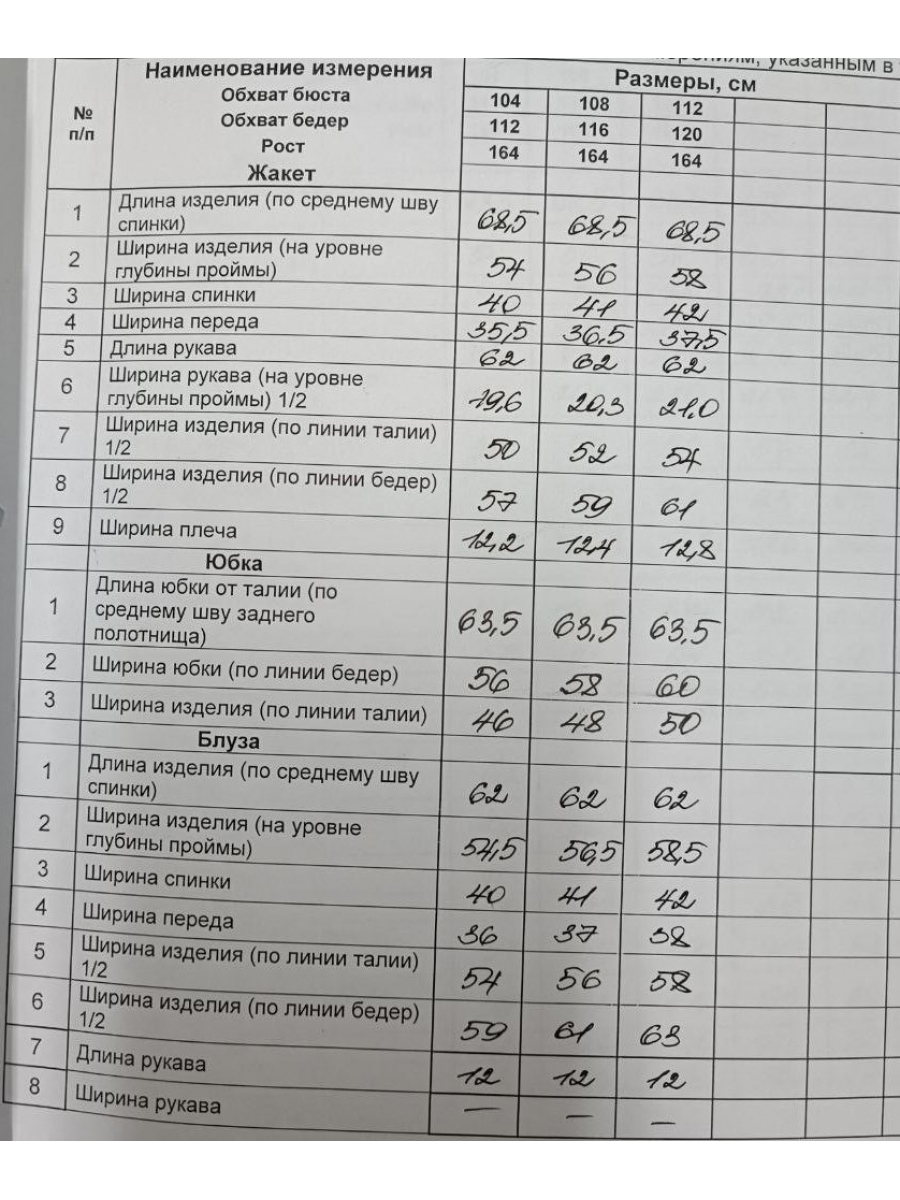 указанным в
№ п/п Наименование измерения Размеры, см
Обхват бюста 104 108 112
Обхват бедер 112 116 120
Рост 164 164 164
Жакет
1 Длина изделия (по среднему шву
спинки) 68,5 68,5 68,5
2 Ширина изделия (на уровне
глубины проймы) 54 56 58
3 Ширина спинки 40 41 42
4 Ширина переда 35,5 36,5 37,5
5 Длина рукава 62 62 62
6 Ширина рукава (на уровне
глубины проймы) 1/2 19,6 20,3 21,0
7 Ширина изделия (по линии талии)
1/2 50 52 54
8 Ширина изделия (по линии бедер)
1/2 57 59 61
9 Ширина плеча 12,2 12,4 12,8
Юбка
1 Длина юбки от талии (по
среднему шву заднего
полотнища) 63,5 63,5 63,5
2 Ширина юбки (по линии бедер) 56 58 60
3 Ширина изделия (по линии талии) 46 48 50
Блуза
1 Длина изделия (по среднему шву
спинки) 62 62 62
2 Ширина изделия (на уровне
глубины проймы) 54,5 56,5 58,5
3 Ширина спинки 40 41 42
4 Ширина переда 36 37 38
5 Ширина изделия (по линии талии)
1/2 54 56 58
6 Ширина изделия (по линии бедер)
1/2 59 61 63
7 Длина рукава 12 12 12
8 Ширина рукава — — —